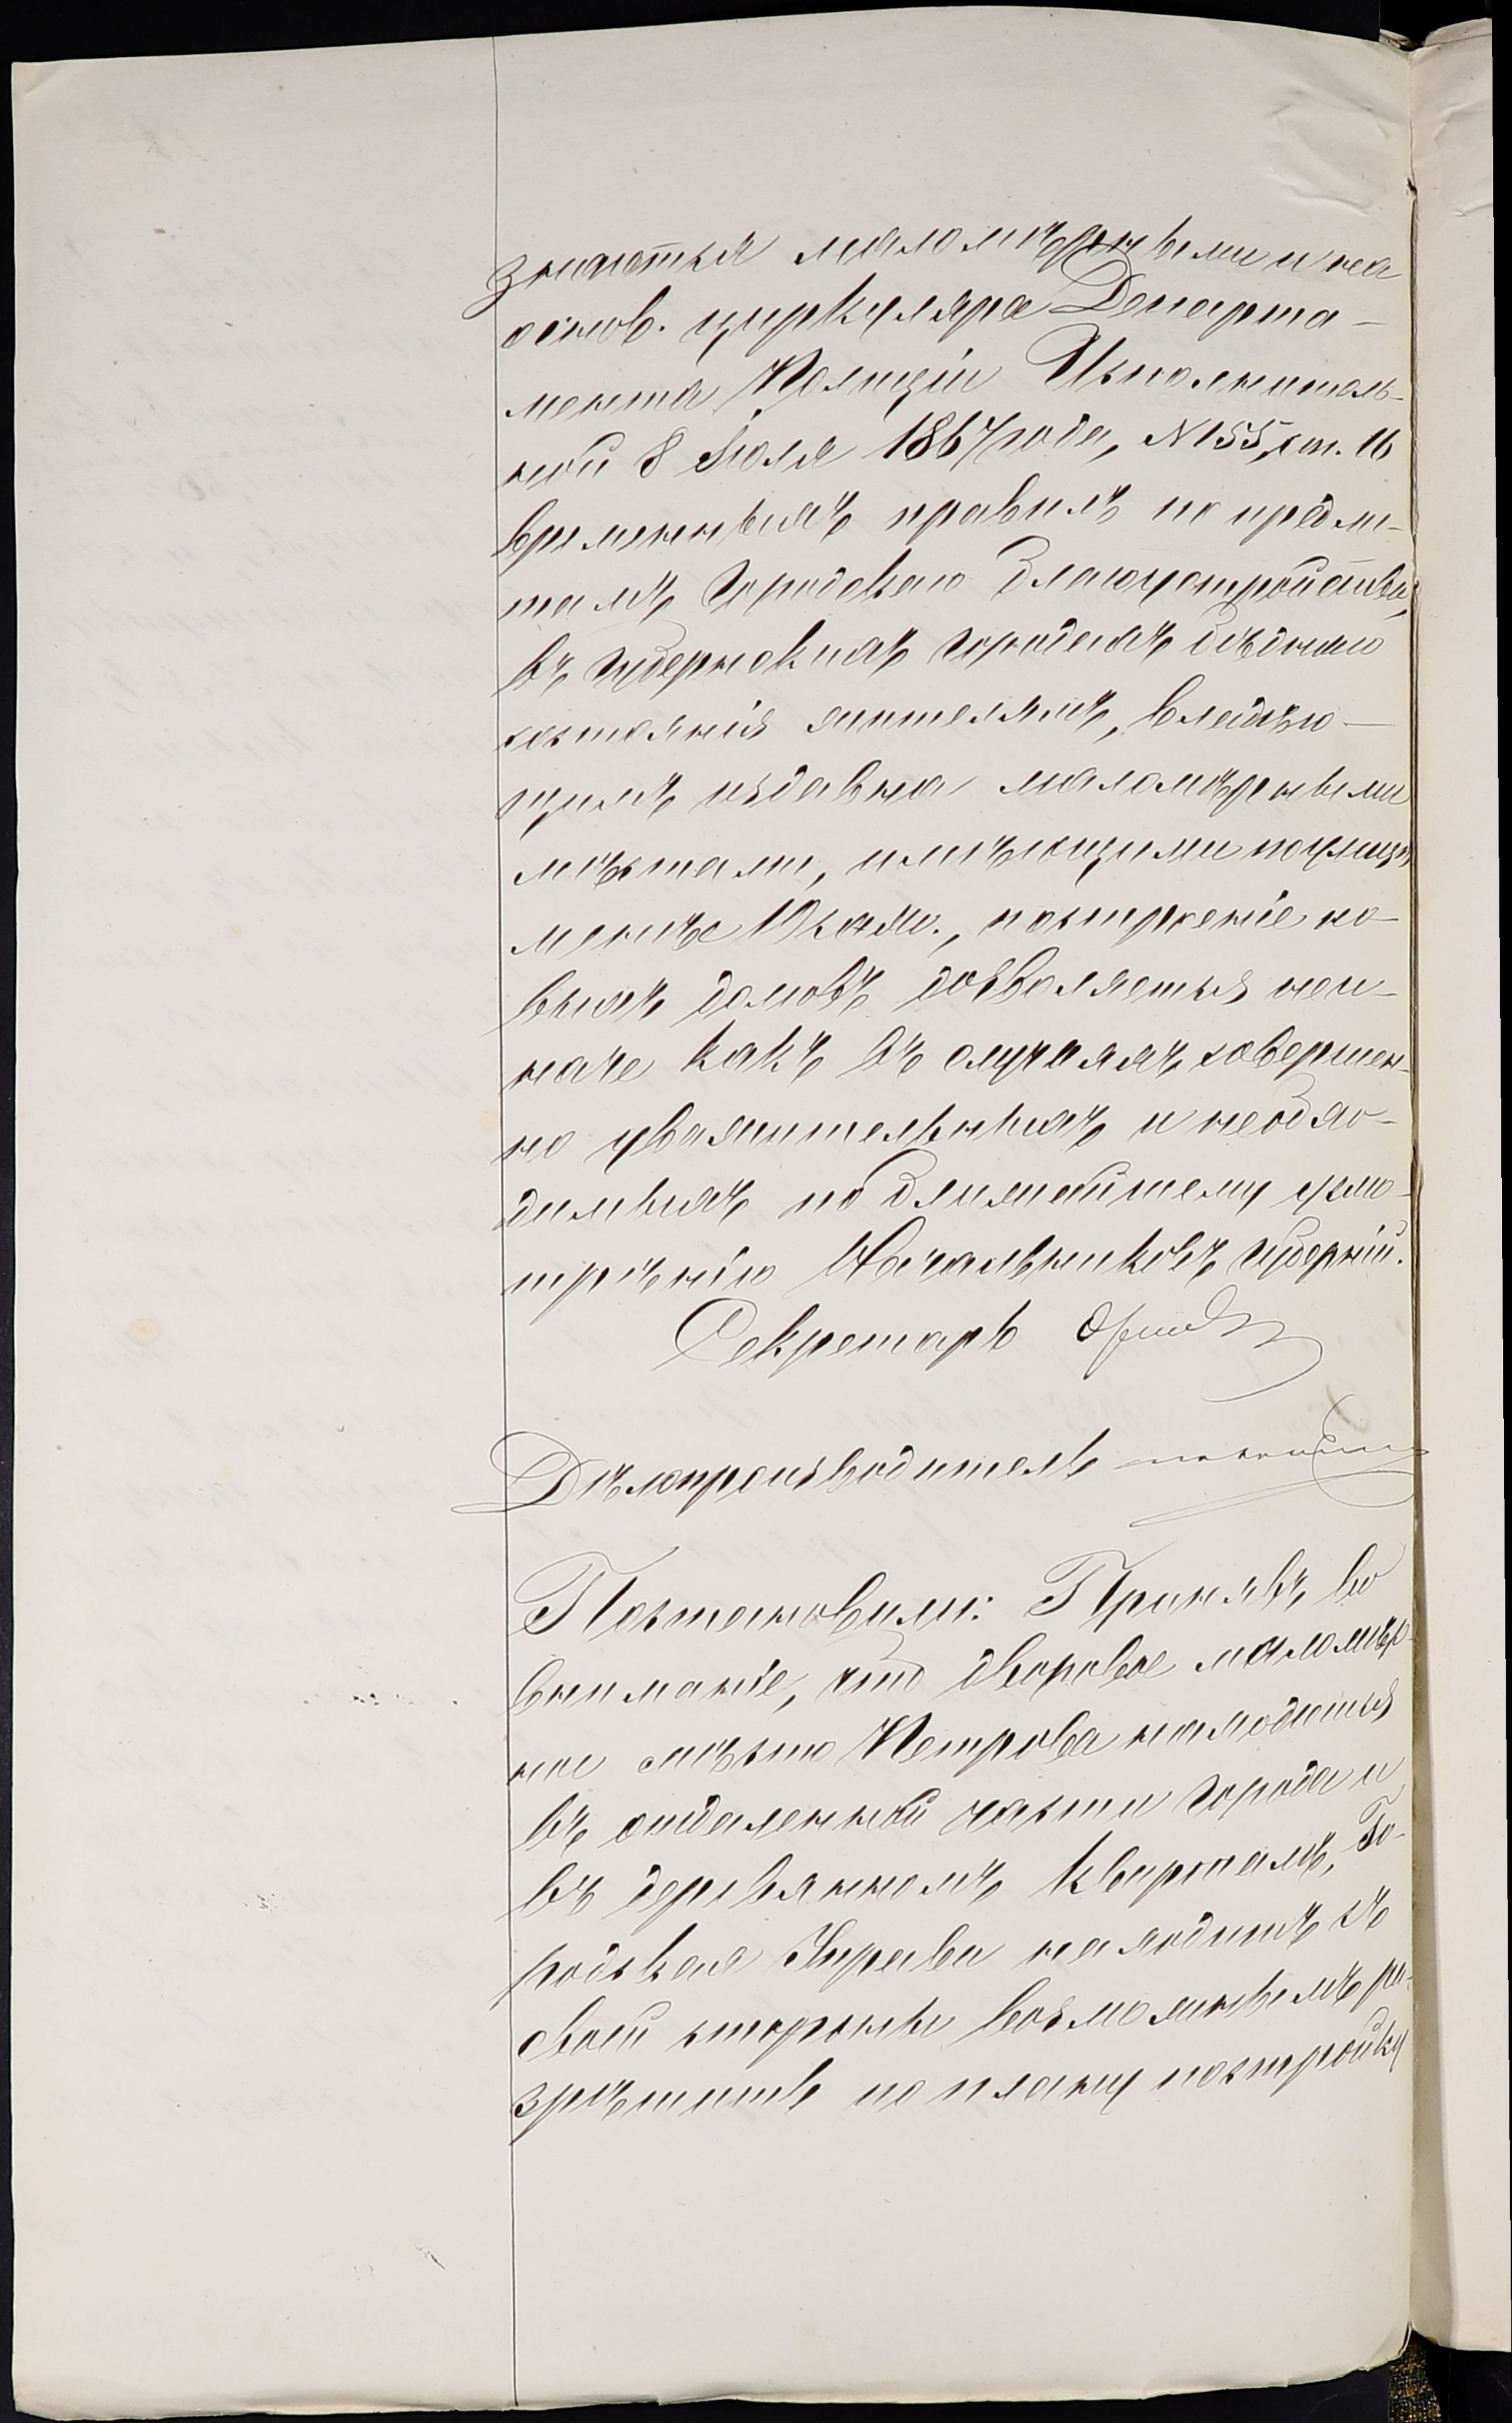 знаются маломѣрными и на
основ. циркуляра Департа-
мента Полиціи Исполнитель-
ной 8 Іюля 1867 года, № 155, ст. 16
временныхъ правилъ по предме-
тамъ городскаго благоустройства,
въ губернскихъ городахъ бѣднаго
состоянія жителямъ, владѣю-
щимъ издавна маломѣрными
мѣстами, имѣющими по улицѣ
менѣе 10 саж., построеніе но-
выхъ домовъ дозволяется неи-
наче какъ въ случаяхъ совершен-
но уважительныхъ и необхо-
димыхъ по ближайшему усмо-
трѣнію Начальниковъ губерній.
Секретарь
Дѣлопроизводитель
Постановили: Принявъ во
вниманіе, что дворовое маломѣр-
ное мѣсто Петрова находится
въ отдаленной части города и
въ деревянномъ кварталѣ, Го-
родская Управа находитъ съ
своей стороны возможнымъ ра-
зрѣшить по плану постройку